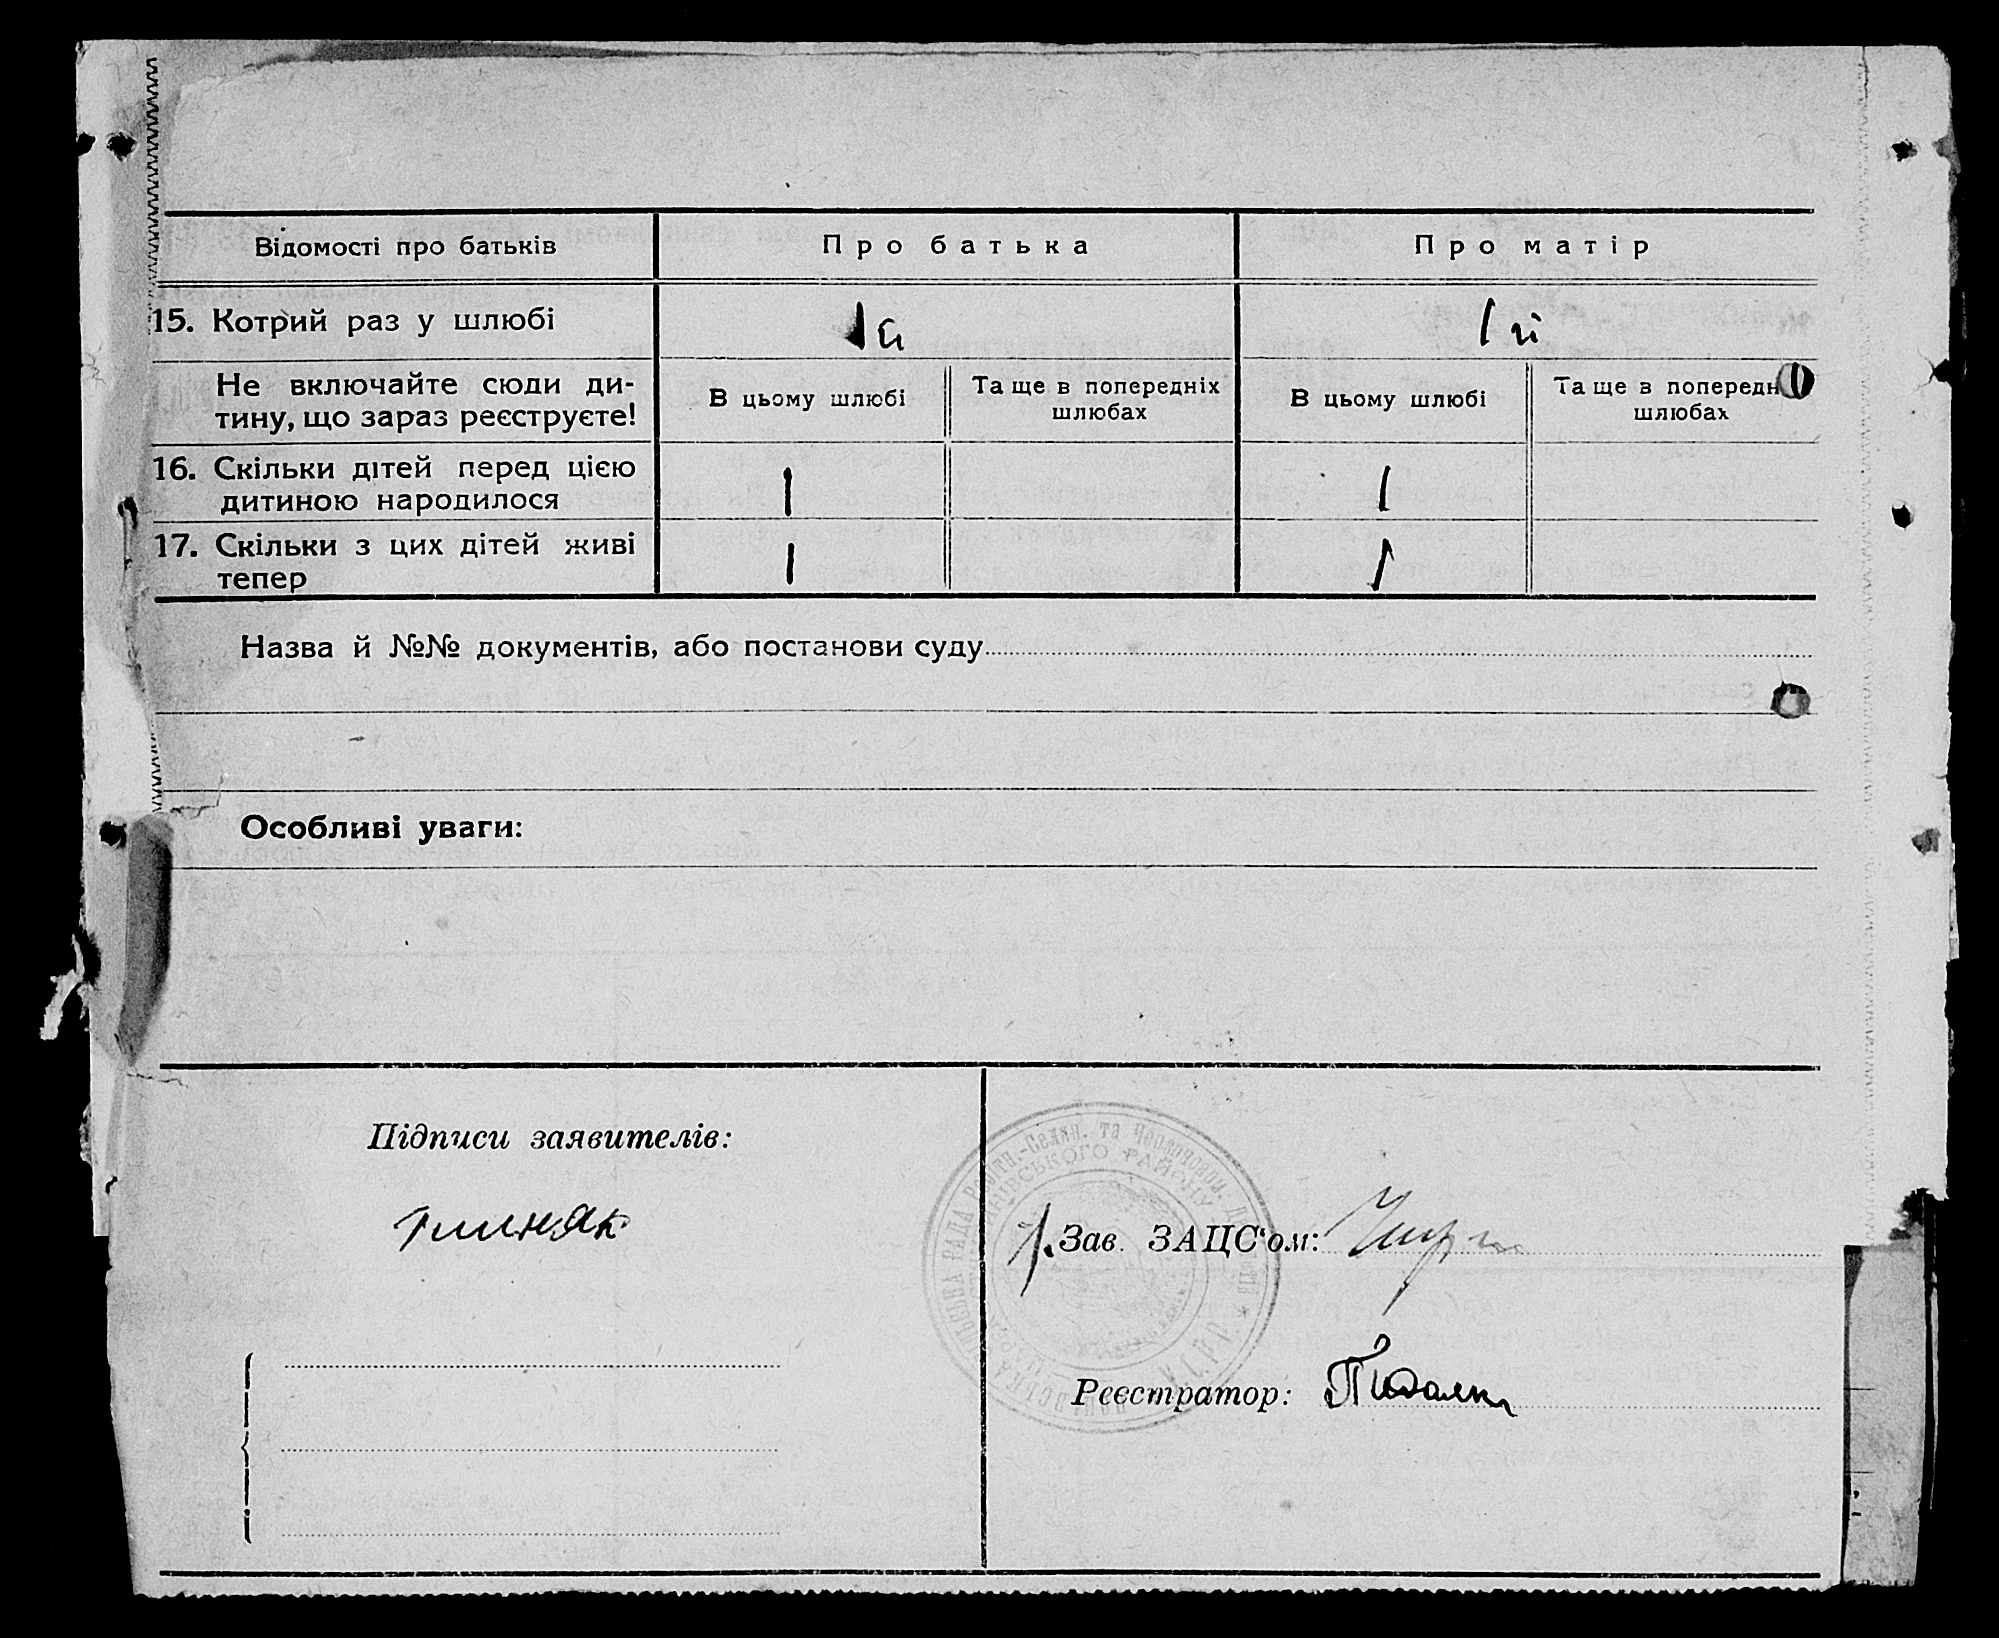 Відомості про батьків
Про батька
Про матір
15. Котрий раз у шлюбі
1й
1й
Не включайте сюди ди-
тину, що зараз реєструєте!
В цьому шлюбі
Та ще в попередніх
шлюбах
В цьому шлюбі
Та ще в попередн
шлюбах
16. Скільки дітей перед цією
дитиною народилося
1
1
17. Скільки з цих дітей живі
тепер
1
1
Назва й №№ документів, або постанови суду
Особливі уваги:
Підписи заявителів:
Зав. ЗАЦС'ом:
Реєстратор:
РАДА Робітн.-Селян. та Червоноарм.
РАЙОНУ